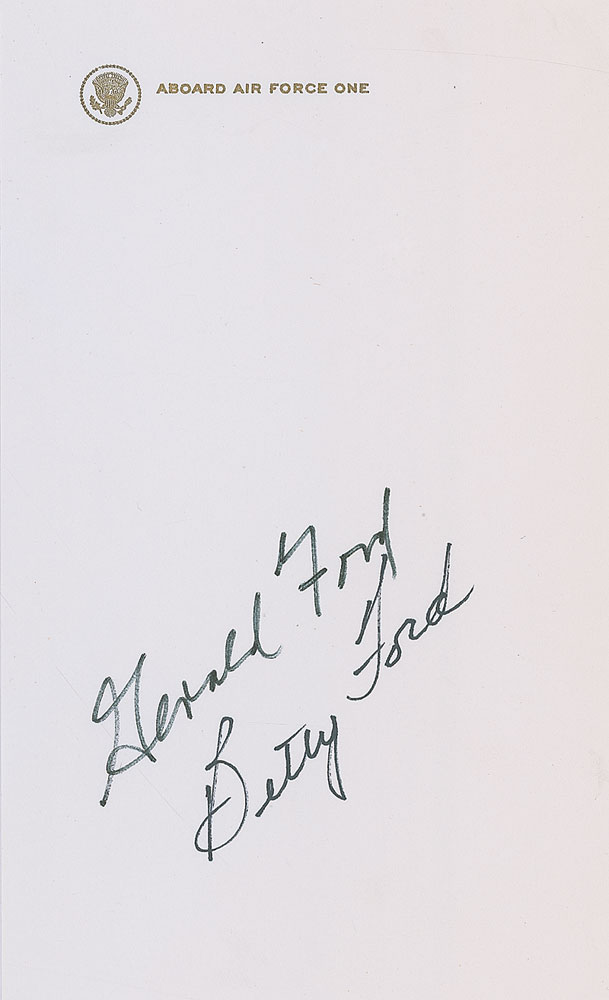 ABOARD AIR FORCE ONE
Gerald Ford
Betty Ford